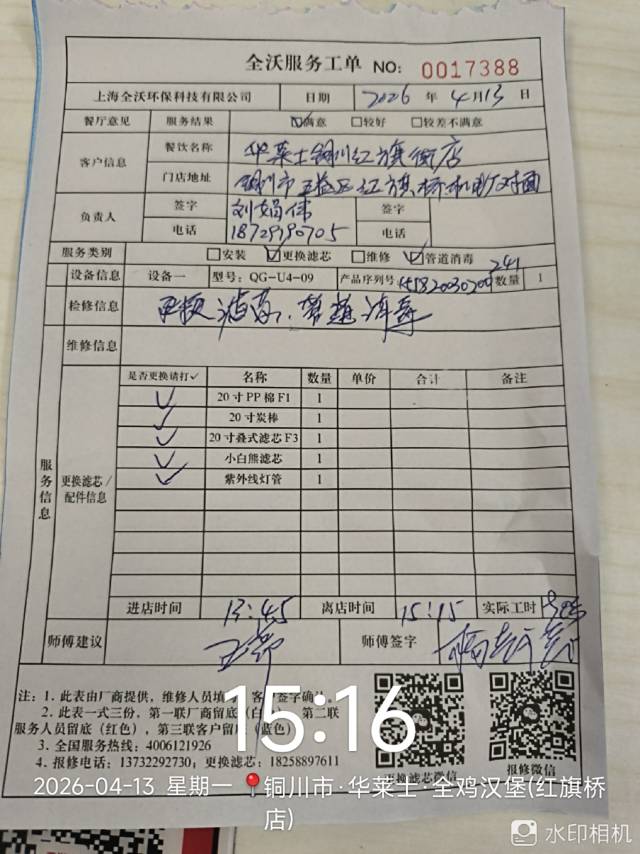 全沃服务工单 NO: 0017388
上海全沃环保科技有限公司 日期 2026 年 4月13日
餐厅意见 服务结果 ☑满意 □较好 □较差不满意
客户信息 餐饮名称 华莱士铜川红旗街店
门店地址 铜川市王益区红旗桥 对面
负责人 签字 签字
电话 18729190705 电话
服务类别 □安装 ☑更换滤芯 □维修 ☑管道消毒
设备信息 设备一 型号: QG-U4-09 产品序列号 数量 1
检修信息 更换滤芯、管道消毒
维修信息
服务信息
更换滤芯/配件信息
是否更换请打✓ 名称 数量 单价 合计 备注
✓ 20寸PP棉F1 1
✓ 20寸炭棒 1
✓ 20寸叠式滤芯F3 1
✓ 小白熊滤芯 1
✓ 紫外线灯管 1
进店时间 13:45 离店时间 15:15 实际工时
师傅建议 师傅签字
注: 1. 此表由厂商提供, 维修人员填 客 签字确认。
2. 此表一式三份, 第一联厂商留底(白 第二联
服务人员留底(红色), 第三联客户留 (蓝色)
3. 全国服务热线: 4006121926
4. 报修电话: 13732292730; 更换滤芯: 18258897611
更换滤芯微信 报修微信
15:16
2026-04-13 星期一 铜川市·华莱士·全鸡汉堡(红旗桥
店)
水印相机